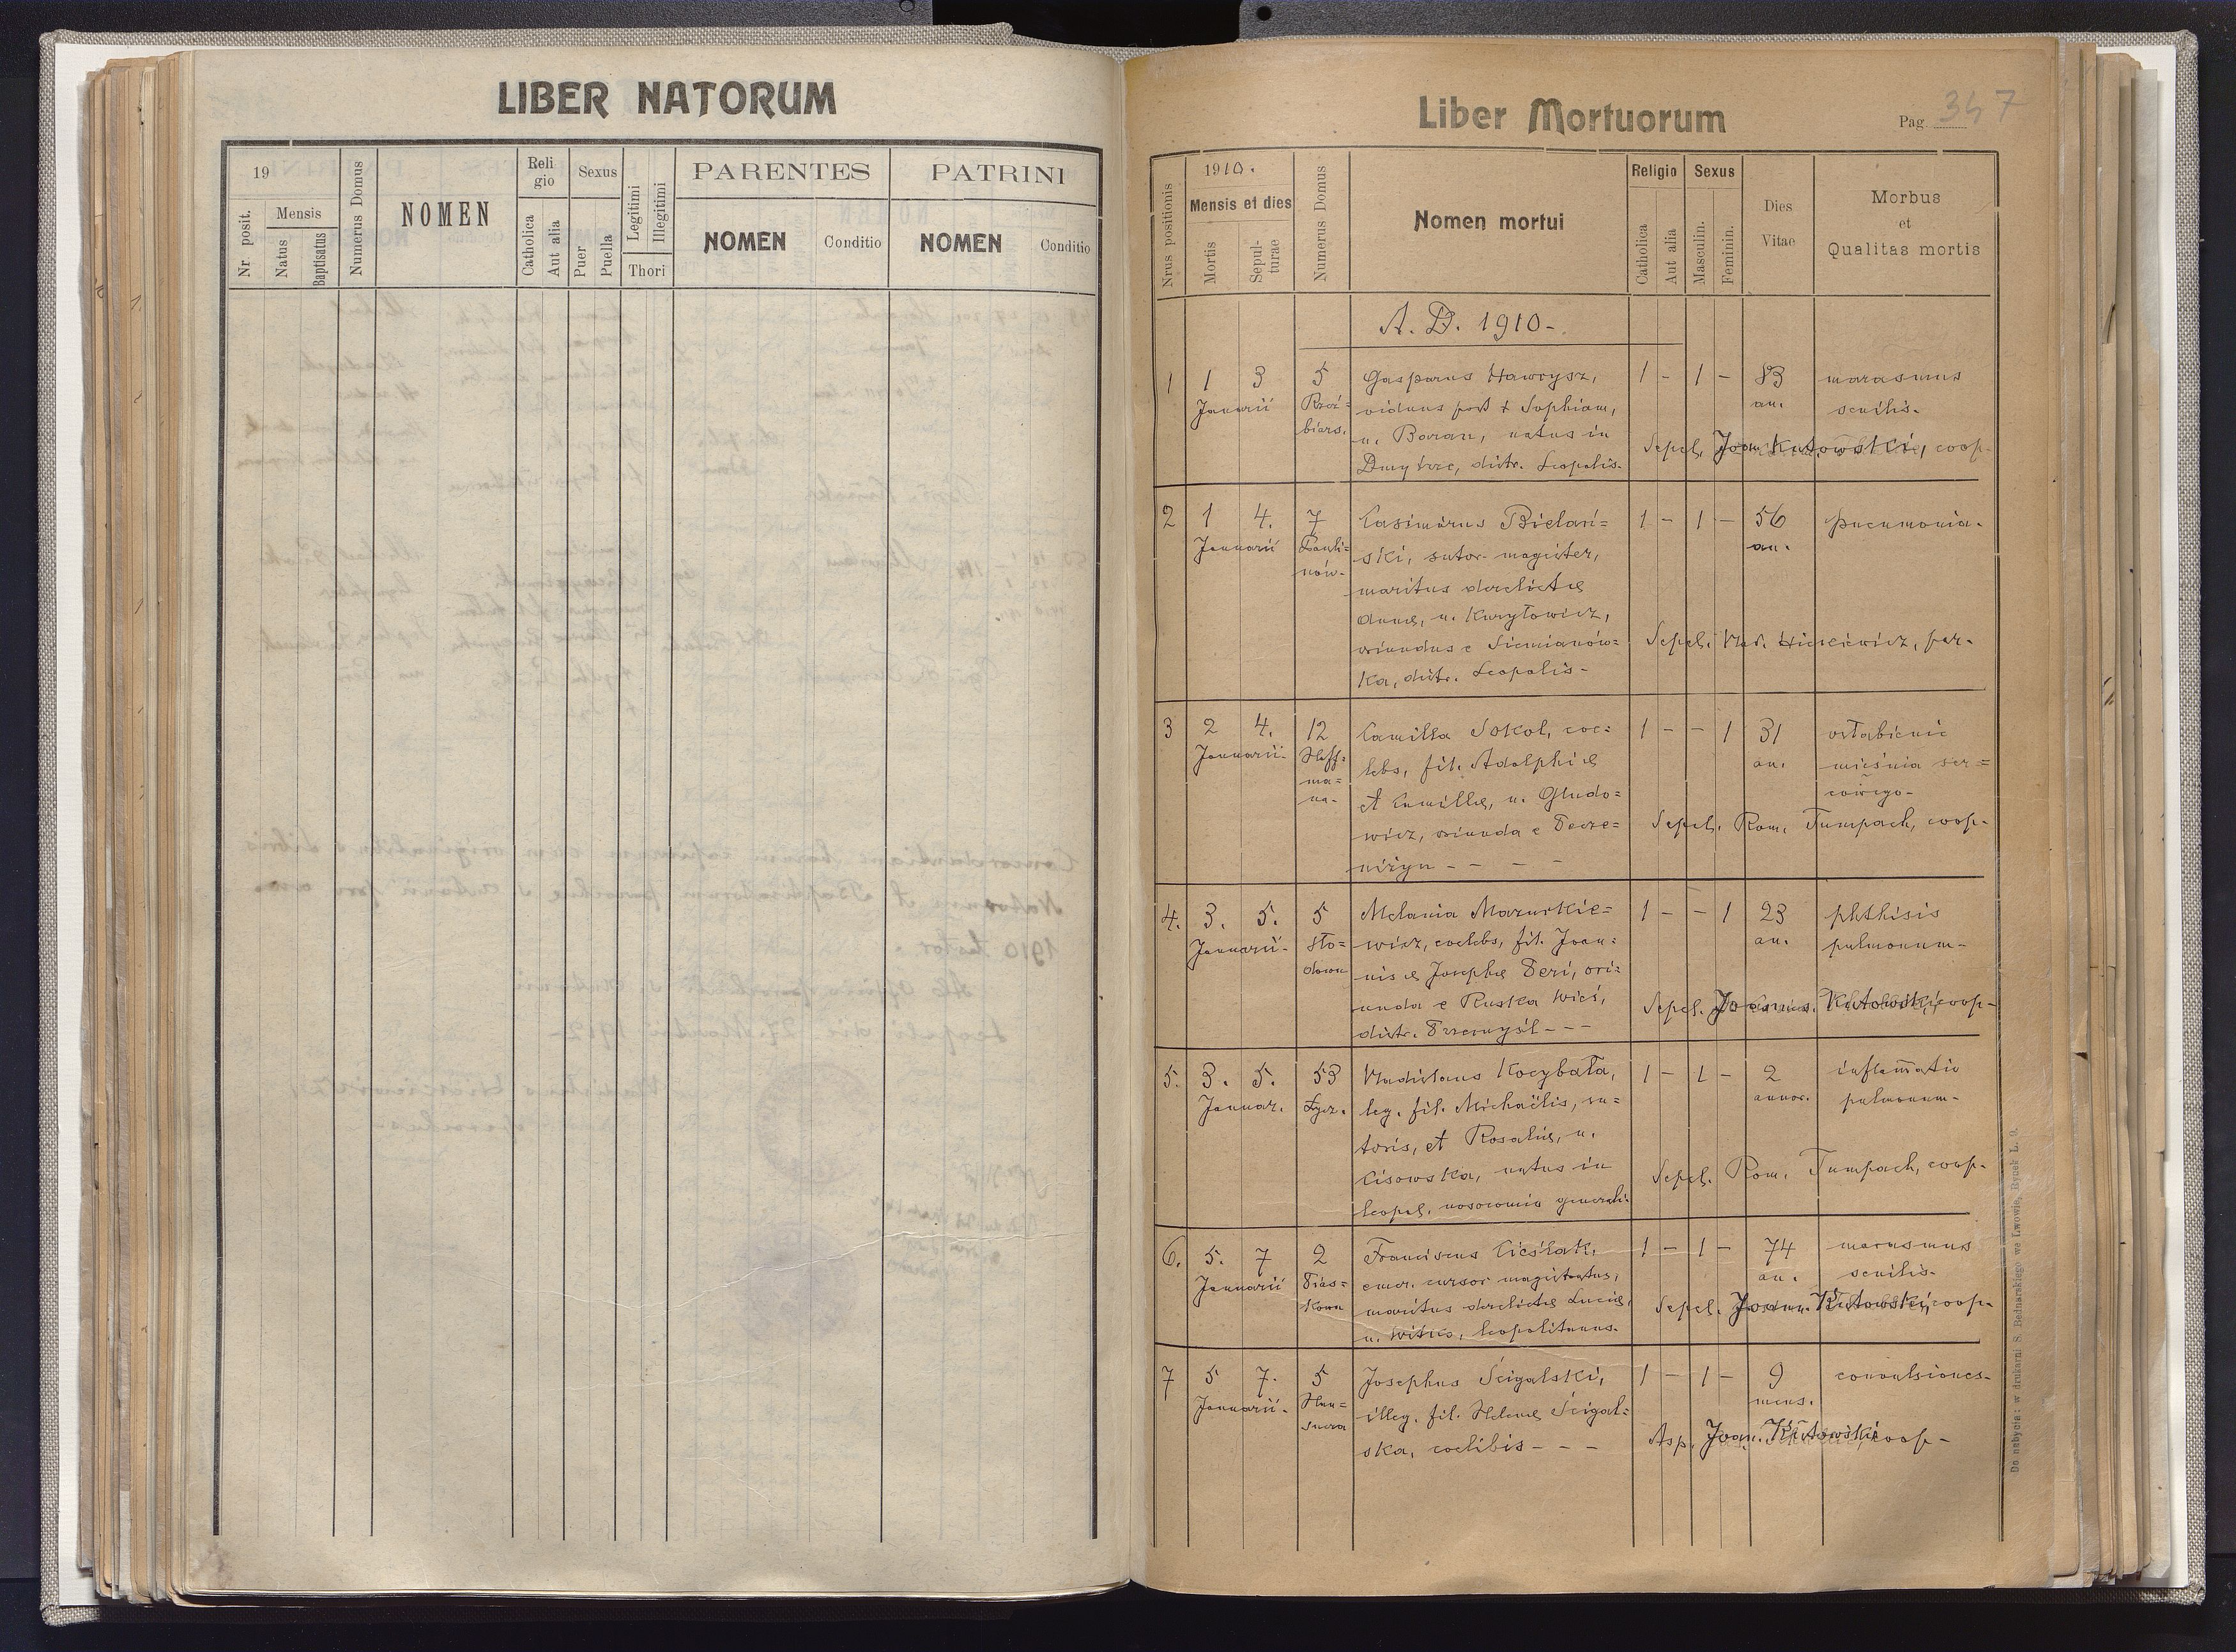 LIBER NATORUM
19
Mensis
Nr posit.
Natus
Baptisatus
Numerus Domus
NOMEN
Reli
gio
Catholica
Aut alia
Sexus
Puer
Puella
Legitimi
Illegitimi
Thori
PARENTES
NOMEN
Conditio
PATRINI
NOMEN
Conditio
Liber Mortuorum
Pag. 347
Nrus positionis
1910.
Mensis et dies
Mortis
Sepul-
turae
Numerus Domus
Nomen mortui
Religio
Catholica
Aut alia
Sexus
Masculin.
Feminin.
Dies
Vitae
Morbus
et
Qualitas mortis
A. D. 1910-
1 1 3 5 Gasparus Hawrysz, 1 - 1 - 83 marasmus
Januarii viduus post + Sophiam, an. senilis.
biars. n. Baran, natus in
Sepel. Joan. Kutowski, coop.
Dmytrze, distr. Leopolis.
2 1 4. 7 Casimirus Bielań= 1 - 1 - 56 pneumonia.
Januarii Pauli= ski, sutor magister, an.
nów. maritus derelictae
Annae, n. Kuryłowicz,
oriundus e Siemianów= Sepel. Vlad. Hickiewicz, par.
ka, distr. Leopolis-
3 2 4. 12 Camilla Sokol, coe= 1 - - 1 31 osłabienie
Januarii. Hoff= lebs, fil. Adolphi & an. mięśnia ser=
ma= et Camillae, n. Gludo= cowego-
na.
wicz, oriunda e Pecze= Sepel. Rom. Tumpach, coop.
niżyn - - - -
4. 3. 5. 5 Melania Mazurkie= 1 - - 1 23 phthisis
Januarii. Sto= wicz, coelebs, fil. Joan= an. pulmonum-
dowa nis & Josephae Peri, ori=
unda e Ruska Wieś, Sepel. Joannes Kutowski, coop-
distr. Przemyśl - - -
5. 3. 5. 53 Vladislaus Kocybała, 1 - 1 - 2 inflam̄atio
Januar. Łycz. leg. fil. Michaëlis, su= annor. pulmonum-
toris, et Rosaliae, n.
Lisowska, natus in Sepel. Rom. Tumpach, coop.
Leopol. nosocomio generali.
6. 5. 7 2 Franciscus Cieślak, 1 - 1 - 74 marasmus
Januarii Pias= emer. cursor magistratus, an. senilis-
kowa maritus derelictae Luciae, Sepel. Joann. Kutowski, coop.
n. Witko, Leopolitanus.
7 5 7. 5 Josephus Ścigalski, 1 - 1 - 9 convulsiones-
Januarii. Hau= illeg. fil. Helenae Ścigal= mens.
snera ska, coelibis - - - Asp. Joan. Kutowski coop-
Do nabycia: w drukarni S. Bednarskiego we Lwowie, Rynek L. 9.